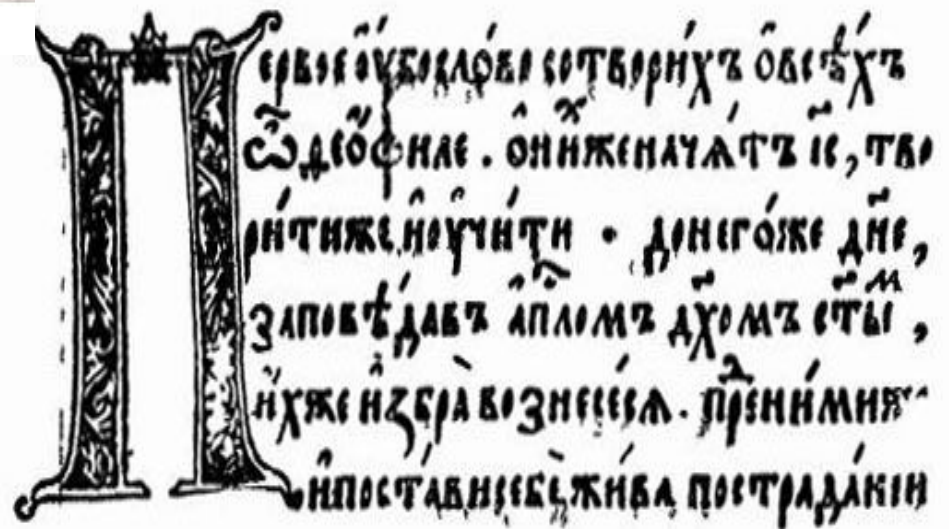 Первое ᲂу҆́бо сло́во сотвори́хъ ѡ҆ всѣ́хъ
ѽ ѳео́филе . ѻ҆ ни́хже нача́тъ і҆с҃, тво
ри́ти же и҆ ᲂу҆чи́ти · до него́же дн҃е,
заповѣ́давъ а҆пⷭ҇ломъ дх҃омъ ст҃ыⷨ,
и҆́хже и҆збра̀ вознесе́сѧ . преⷣ ни́мижⷷ
и҆ поста́ви себѐ жи́ва по страда́нїи